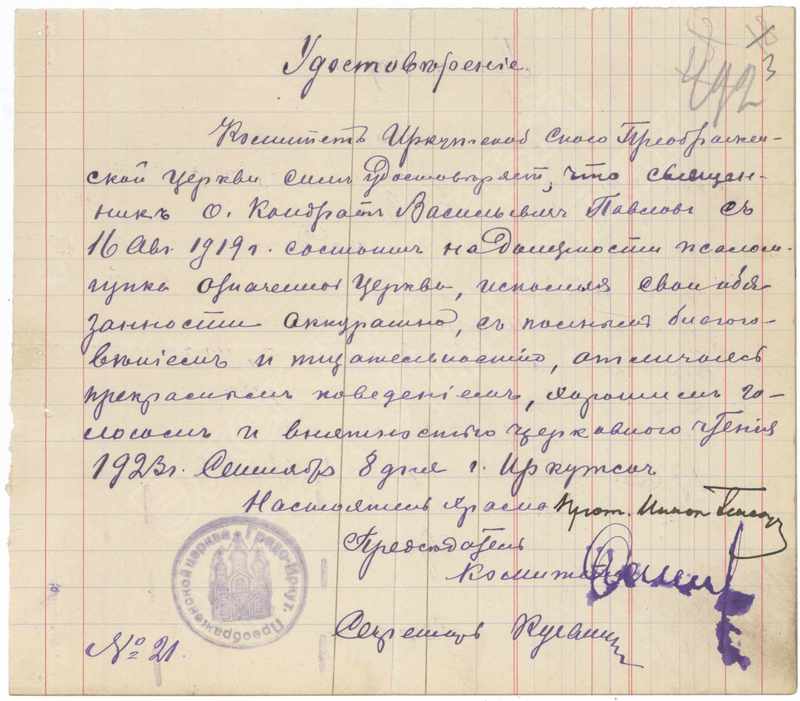 Удостовѣреніе.
Комитетъ Иркутской ского Преображен-
ской церкви симъ удостовѣряетъ, что священ-
никъ о. Кондратъ Васильевич Павловъ съ
16 Авг 1919 г. состоит на Должности псалом-
щика означенной церкви, исполняя свои обя
занности аккуратно, съ полнымъ благого-
вѣніемъ и тщательностію, отличаясь
прекраснымъ поведеніемъ, хорошимъ го-
лосомъ и внятностію церковного чтенія
1923 г. Сентября 8 дня г. Иркутскъ
Настоятель храма Прот.
Предсѣдатель
Комитета
Секретарь
№ 21.
Градо-Иркут. Преображенской церкви
492
3